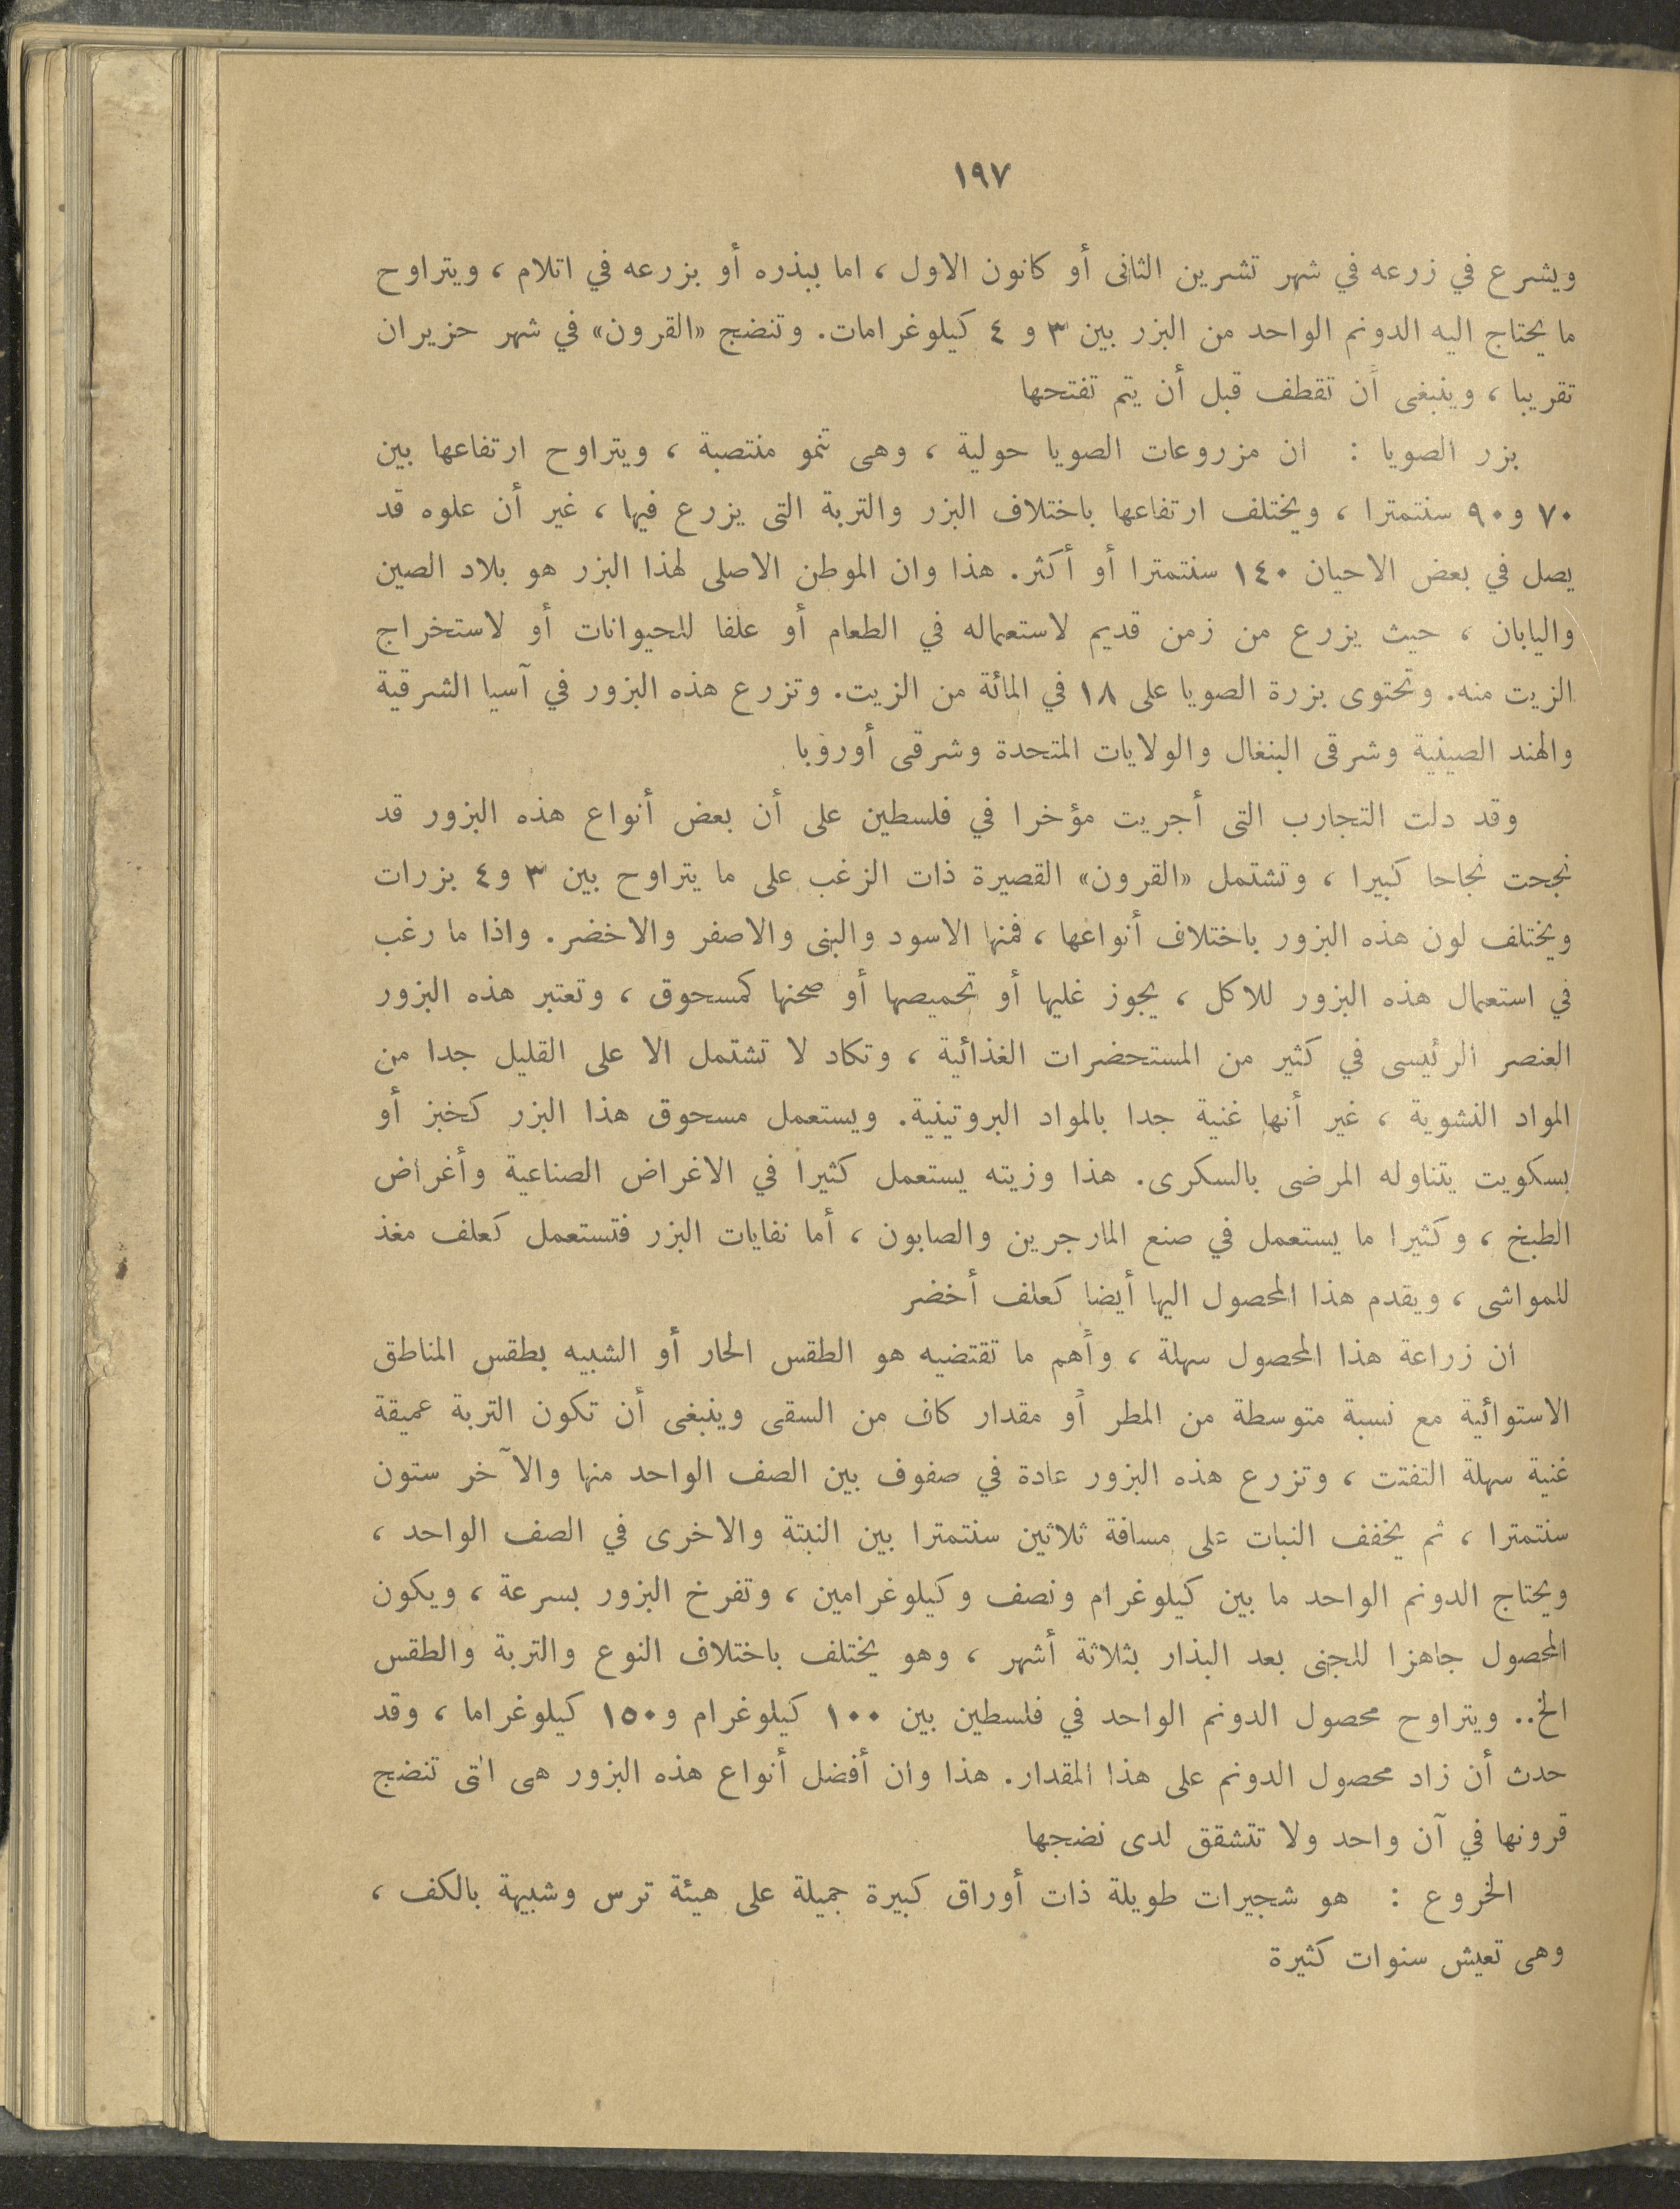 ١٩٧
ويشرع في زرعه في شهر تشرين الثانى أو كانون الاول ، اما ببذره أو بزرعه في اتلام ، ويتراوح
ما يحتاج اليه الدونم الواحد من البزر بين ٣ و ٤ كيلوغرامات. وتنضج «القرون» في شهر حزيران
تقريبا ، وينبغى أن تقطف قبل أن يتم تفتحها
بزر الصويا : ان مزروعات الصويا حولية ، وهى تنمو منتصبة ، ويتراوح ارتفاعها بين
٧٠ و٩٠ سنتمترا ، ويختلف ارتفاعها باختلاف البزر والتربة التى يزرع فيها ، غير أن علوه قد
يصل في بعض الاحيان ١٤٠ سنتمترا أو أكثر. هذا وان الموطن الاصلى لهذا البزر هو بلاد الصين
واليابان ، حيث يزرع من زمن قديم لاستعماله في الطعام أو علفا للحيوانات أو لاستخراج
الزيت منه. وتحتوى بزرة الصويا على ١٨ في المائة من الزيت. وتزرع هذه البزور في آسيا الشرقية
والهند الصينية وشرقى البنغال والولايات المتحدة وشرقى أوروبا
وقد دلت التجارب التى أجريت مؤخرا في فلسطين على أن بعض أنواع هذه البزور قد
نجحت نجاحا كبيرا ، وتشتمل «القرون» القصيرة ذات الزغب على ما يتراوح بين ٣ و٤ بزرات
ويختلف لون هذه البزور باختلاف أنواعها ، فمنها الاسود والبنى والاصفر والاخضر. واذا ما رغب
في استعمال هذه البزور للاكل ، يجوز غليها أو تحميصها أو صحنها كمسحوق ، وتعتبر هذه البزور
العنصر الرئيسى في كثير من المستحضرات الغذائية ، وتكاد لا تشتمل الا على القليل جدا من
المواد النشوية ، غير أنها غنية جدا بالمواد البروتينية. ويستعمل مسحوق هذا البزر كخبز أو
بسكويت يتناوله المرضى بالسكرى. هذا وزيته يستعمل كثيرا في الاغراض الصناعية وأغراض
الطبخ ، وكثيرا ما يستعمل في صنع المارجرين والصابون ، أما نفايات البزر فتستعمل كعلف مغذ
للمواشى ، ويقدم هذا المحصول اليها أيضا كعلف أخضر
ان زراعة هذا المحصول سهلة ، وأهم ما تقتضيه هو الطقس الحار أو الشبيه بطقس المناطق
الاستوائية مع نسبة متوسطة من المطر أو مقدار كاف من السقى وينبغى أن تكون التربة عميقة
غنية سهلة التفتت ، وتزرع هذه البزور عادة في صفوف بين الصف الواحد منها والآخر ستون
سنتمترا ، ثم يخفف النبات على مسافة ثلاثين سنتمترا بين النبتة والاخرى في الصف الواحد ،
ويحتاج الدونم الواحد ما بين كيلوغرام ونصف وكيلوغرامين ، وتفرخ البزور بسرعة ، ويكون
المحصول جاهزا للجنى بعد البذار بثلاثة أشهر ، وهو يختلف باختلاف النوع والتربة والطقس
الخ.. ويتراوح محصول الدونم الواحد في فلسطين بين ١٠٠ كيلوغرام و١٥٠ كيلوغراما ، وقد
حدث أن زاد محصول الدونم على هذا المقدار. هذا وان أفضل أنواع هذه البزور هى التى تنضج
قرونها في آن واحد ولا تتشقق لدى نضجها
الخروع : هو شجيرات طويلة ذات أوراق كبيرة جميلة على هيئة ترس وشبيهة بالكف ،
وهى تعيش سنوات كثيرة